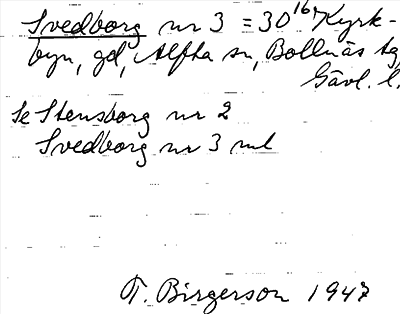 Svedborg nr 3 = 30¹⁶, Kyrk-
byn, gd, Alfta sn, Bollnäs tg,
Gävl. l.
Se Stensborg nr 2
Svedborg nr 3 ml
T. Birgerson 1947